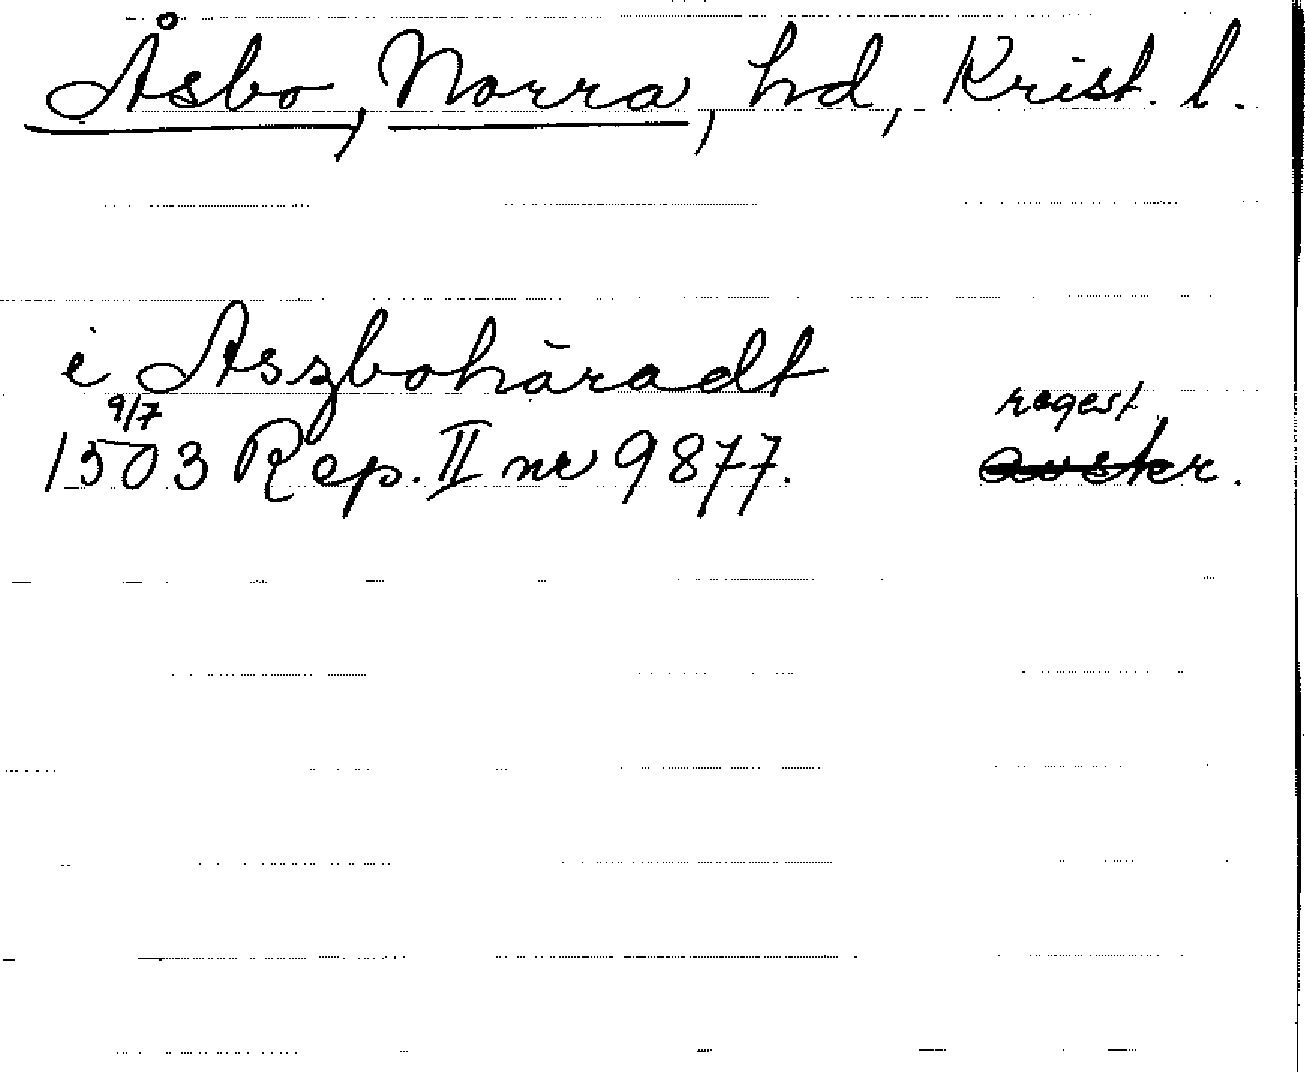 Åsbo, Norra, hd, Krist. l.
i Aszbohäradt
9/7 regest.
1503 Rep. II nr 9877. avskr.